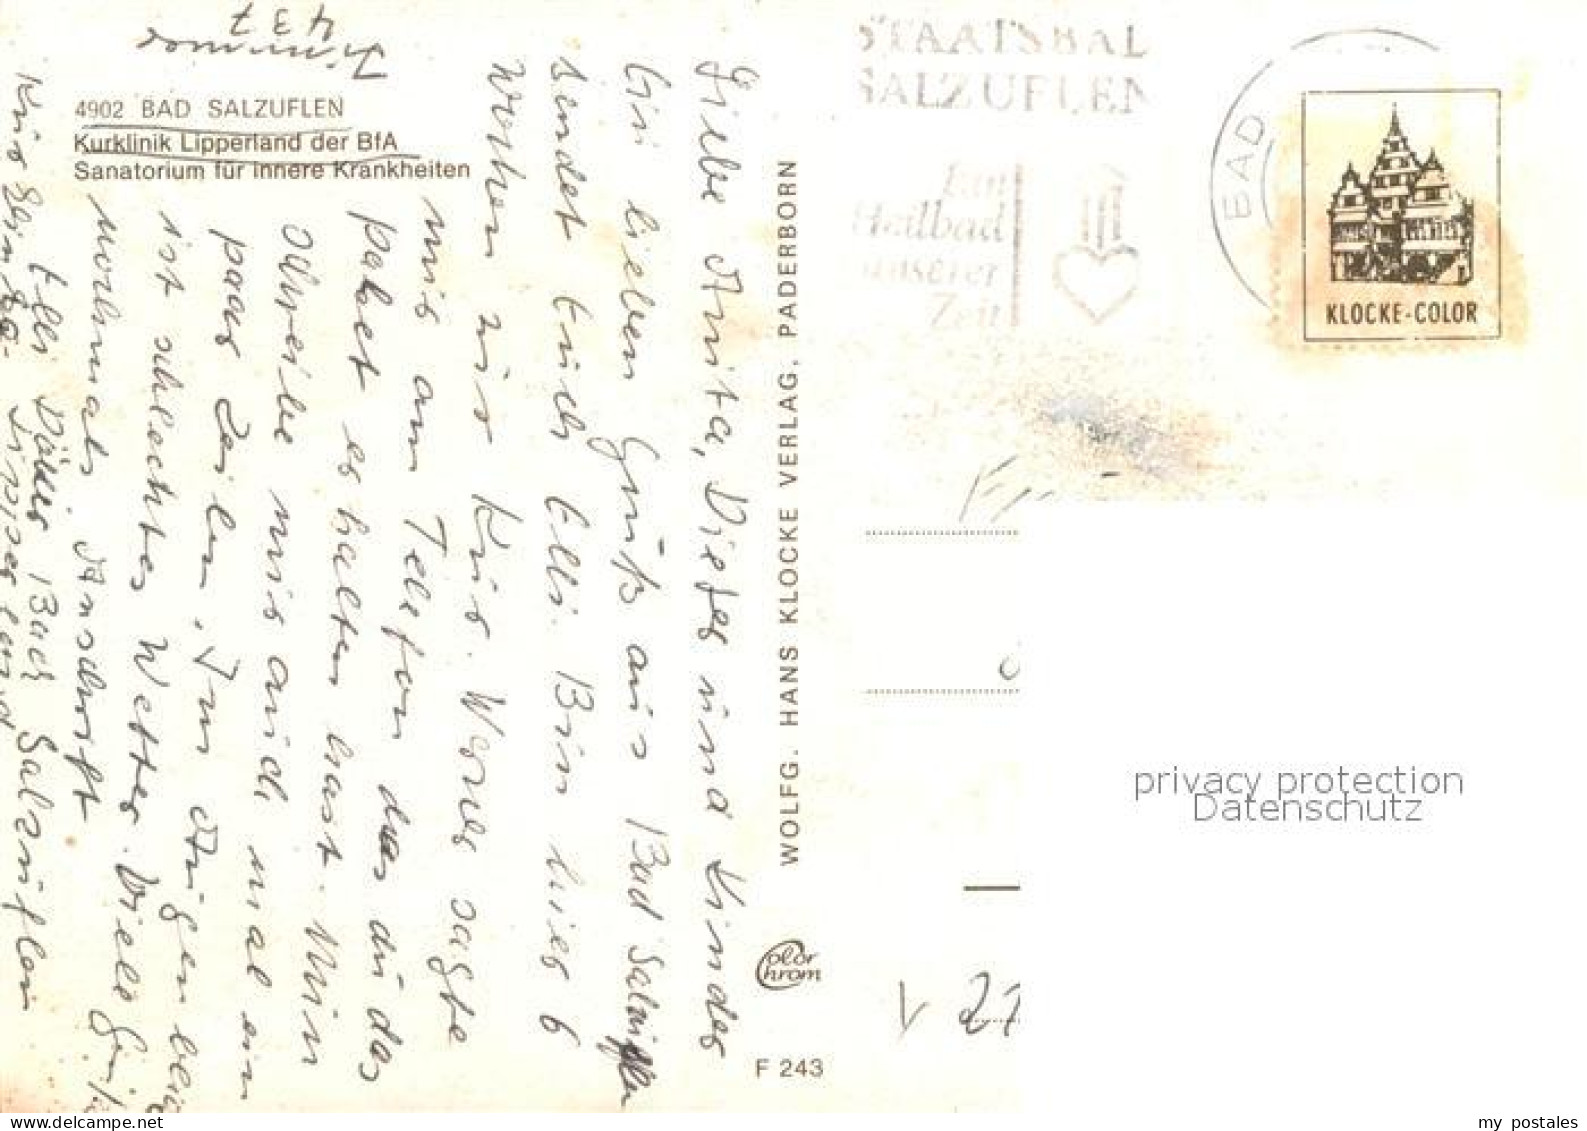 Zimmer
437
4902 BAD SALZUFLEN
Kurklinik Lipperland der BfA
Sanatorium für innere Krankheiten
Liebe Anita, Dieter und Kinder
Ein lieben Gruß aus Bad Salzuflen
sendet Euch Elli. Bin hier 6
Wochen zur Kur. Werner sagte
mir am Telefon das du das
paket erhalten hast. Nun
schreibe mir auch mal ein
paar Zeilen. Im Augenbli
ist schlechtes Wetter. Viele Grüße
nochmals Anschrift
Elli Bad Salzuflen
Lipperland
WOLFG. HANS KLOCKE VERLAG, PADERBORN
Color
Chrom
F 243
STAATSBAD
SALZUFLEN
Ein
Heilbad
unserer
Zeit
BAD
KLOCKE-COLOR
V 27
privacy protection
Datenschutz
my postales